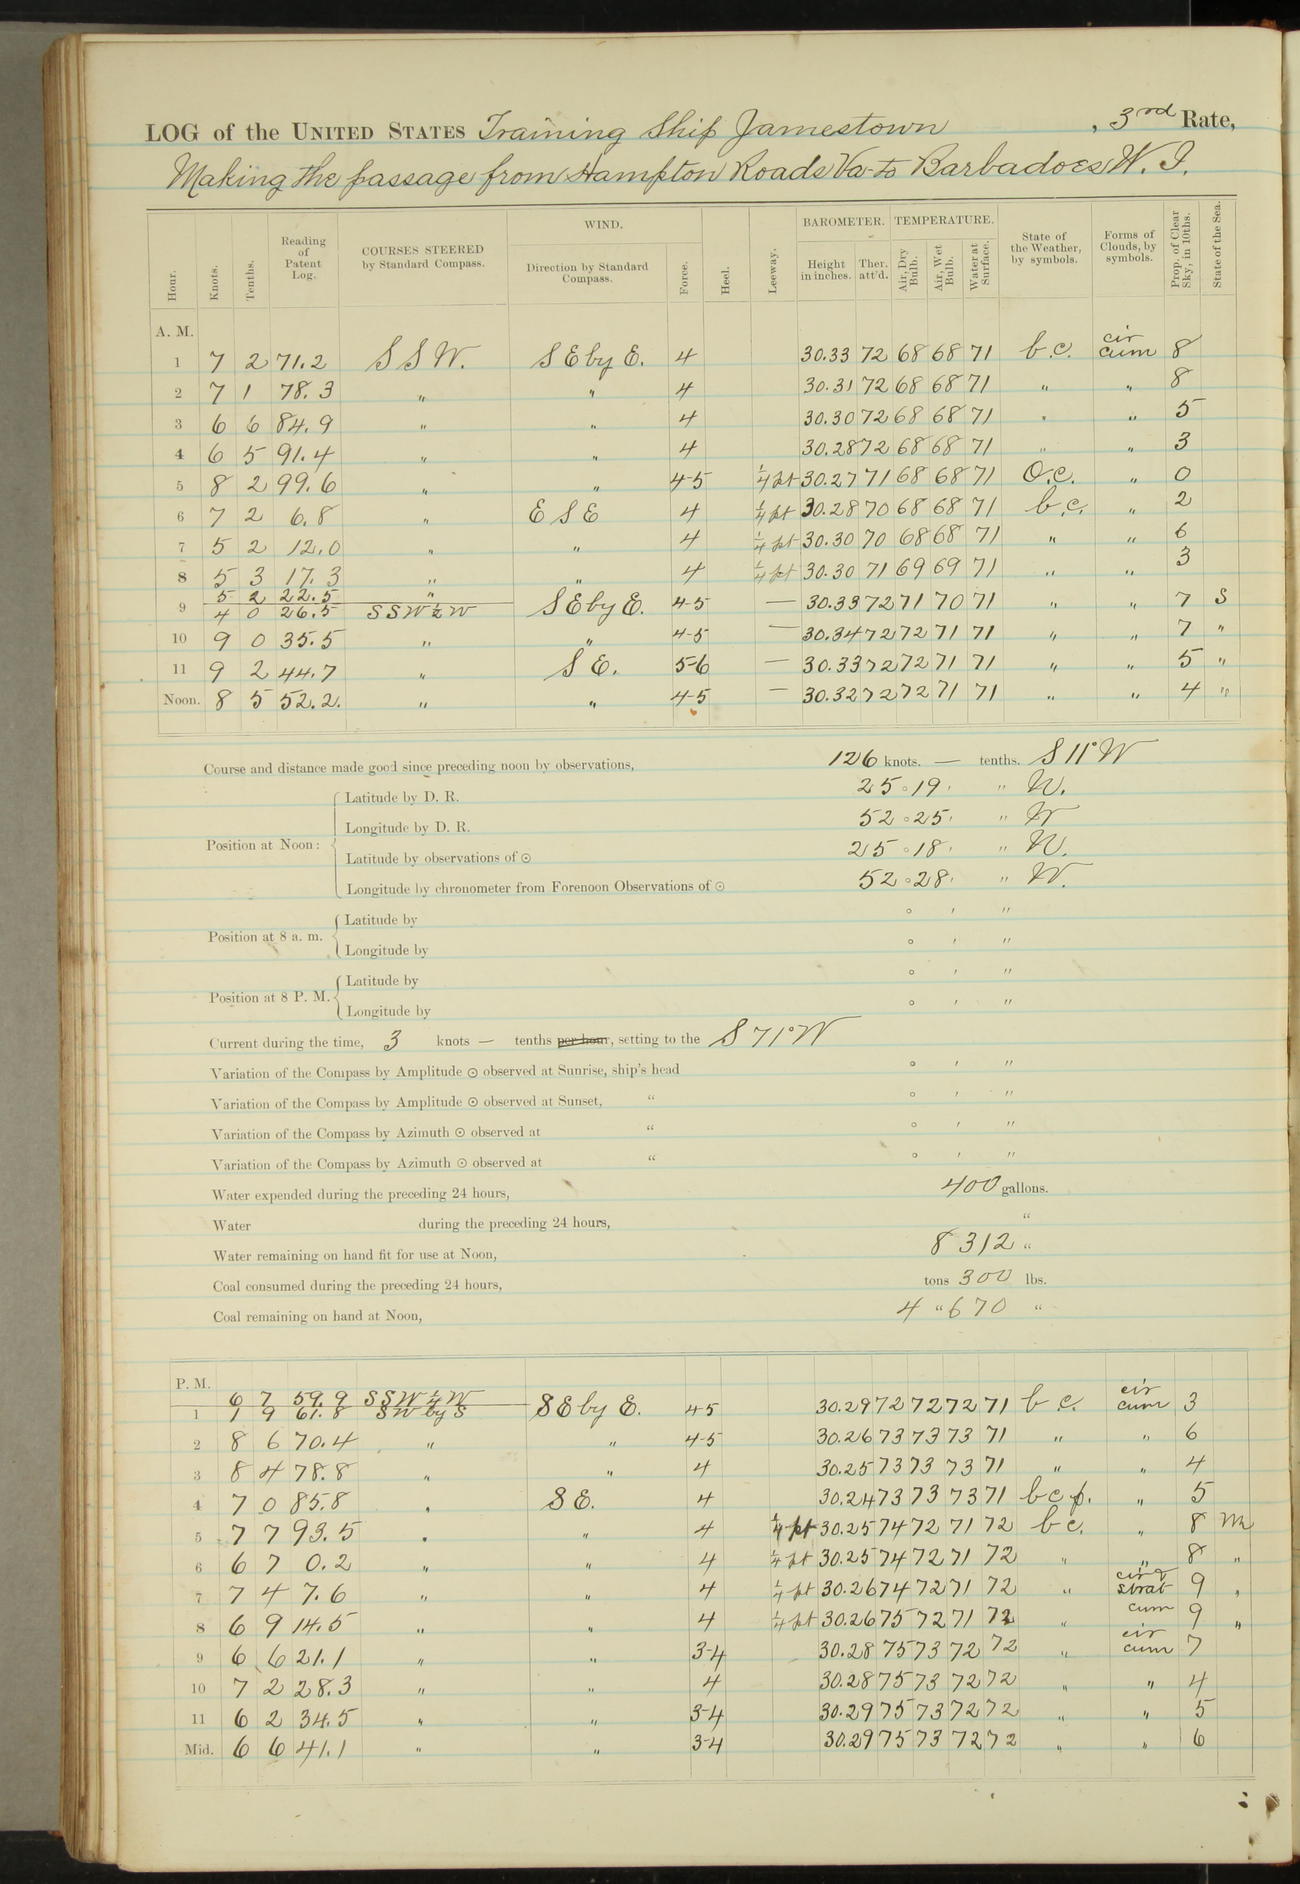 LOG of the UNITED STATES Training Ship Jamestown , 3rd Rate,
Making the passage from Hampton Roads Va to Barbadoes W. I.
Hour. Knots. Tenths. Reading of Patent Log. COURSES STEERED by Standard Compass. WIND. Direction by Standard Compass. Force. Heel. Leeway. BAROMETER. Height in inches. Ther. att'd. TEMPERATURE. Air, Dry Bulb. Air, Wet Bulb. Water at Surface. State of the Weather, by symbols. Forms of Clouds, by symbols. Prop. of Clear Sky, in 10ths. State of the Sea.
A. M.
1 7 2 71.2 S S W. S E by E. 4 30.33 72 68 68 71 b.c. cir cum 8
2 7 1 78.3 " " 4 30.31 72 68 68 71 " " 8
3 6 6 84.9 " " 4 30.30 72 68 68 71 " " 5
4 6 5 91.4 " " 4 30.28 72 68 68 71 " " 3
5 8 2 99.6 " " 4-5 1/4 pt 30.27 71 68 68 71 O.c. " 0
6 7 2 6.8 " E S E 4 1/4 pt 30.28 70 68 68 71 b.c. " 2
7 5 2 12.0 " " 4 1/4 pt 30.30 70 68 68 71 " " 6
8 5 3 17.3 " " 4 1/4 pt 30.30 71 69 69 71 " " 3
5 2 22.5 "
9 4 0 26.5 S S W 1/2 W S E by E. 4-5 — 30.33 72 71 70 71 " " 7 S
10 9 0 35.5 " " 4-5 — 30.34 72 72 71 71 " " 7 "
11 9 2 44.7 " S E. 5-6 — 30.33 72 72 71 71 " " 5 "
Noon. 8 5 52.2. " " 4-5 — 30.32 72 72 71 71 " " 4 "
Course and distance made good since preceding noon by observations, 126 knots. — tenths. S 11° W
Position at Noon:
Latitude by D. R. 25 ° 19 ' " N.
Longitude by D. R. 52 ° 25 ' " W
Latitude by observations of ☉ 25 ° 18 ' " N.
Longitude by chronometer from Forenoon Observations of ☉ 52 ° 28 ' " W.
Position at 8 a. m.
Latitude by ° ' "
Longitude by ° ' "
Position at 8 P. M.
Latitude by ° ' "
Longitude by ° ' "
Current during the time, 3 knots — tenths per hour, setting to the S 71° W
Variation of the Compass by Amplitude ☉ observed at Sunrise, ship's head ° ' "
Variation of the Compass by Amplitude ☉ observed at Sunset, " ° ' "
Variation of the Compass by Azimuth ☉ observed at " ° ' "
Variation of the Compass by Azimuth ☉ observed at " ° ' "
Water expended during the preceding 24 hours, 400 gallons.
Water during the preceding 24 hours, "
Water remaining on hand fit for use at Noon, 8312 "
Coal consumed during the preceding 24 hours, tons 300 lbs.
Coal remaining on hand at Noon, 4 " 670 "
P. M.
6 7 59.9 S S W 1/4 W
1 1 9 61.8 S W by S S E by E. 4-5 30.29 72 72 72 71 b c. cir cum 3
2 8 6 70.4 " " 4-5 30.26 73 73 73 71 " " 6
3 8 4 78.8 " " 4 30.25 73 73 73 71 " " 4
4 7 0 85.8 " S E. 4 30.24 73 73 73 71 b c p. " 5
5 7 7 93.5 " " 4 1/4 pt 30.25 74 72 71 72 b c. " 8 M
6 6 7 0.2 " " 4 1/4 pt 30.25 74 72 71 72 " " 8 "
7 7 4 7.6 " " 4 1/4 pt 30.26 74 72 71 72 " cir & strat 9 "
8 6 9 14.5 " " 4 1/4 pt 30.26 75 72 71 72 " cum 9 "
9 6 6 21.1 " " 3-4 30.28 75 73 72 72 " cir cum 7
10 7 2 28.3 " " 4 30.28 75 73 72 72 " " 4
11 6 2 34.5 " " 3-4 30.29 75 73 72 72 " " 5
Mid. 6 6 41.1 " " 3-4 30.29 75 73 72 72 " " 6